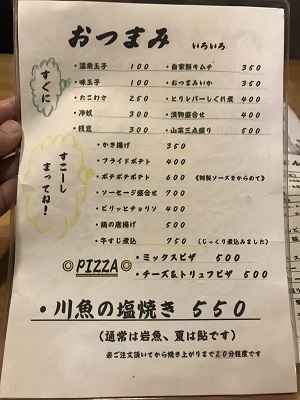 おつまみ いろいろ
すぐに
・温泉玉子 100
・味玉子 100
・たこわさ 250
・冷奴 300
・枝豆 300
・自家製キムチ 350
・おつまみいか 350
・ピリレバーしぐれ煮 400
・漬物盛合せ 400
・山菜三点盛り 500
すこーし
まってね!
・かき揚げ 350
・フライドポテト 400
・ポチポチポテト 600 《特製ソースをからめて》
・ソーセージ盛合せ 700
・ピリッとチョリソ 400
・鶏の唐揚げ 500
・牛すじ煮込 750 (じっくり煮込みました)
◎PIZZA◎
・ミックスピザ 500
・チーズ&トリュフピザ 500
・川魚の塩焼き 550
(通常は岩魚、夏は鮎です)
※ご注文頂いてから焼き上がりまで20分程度です